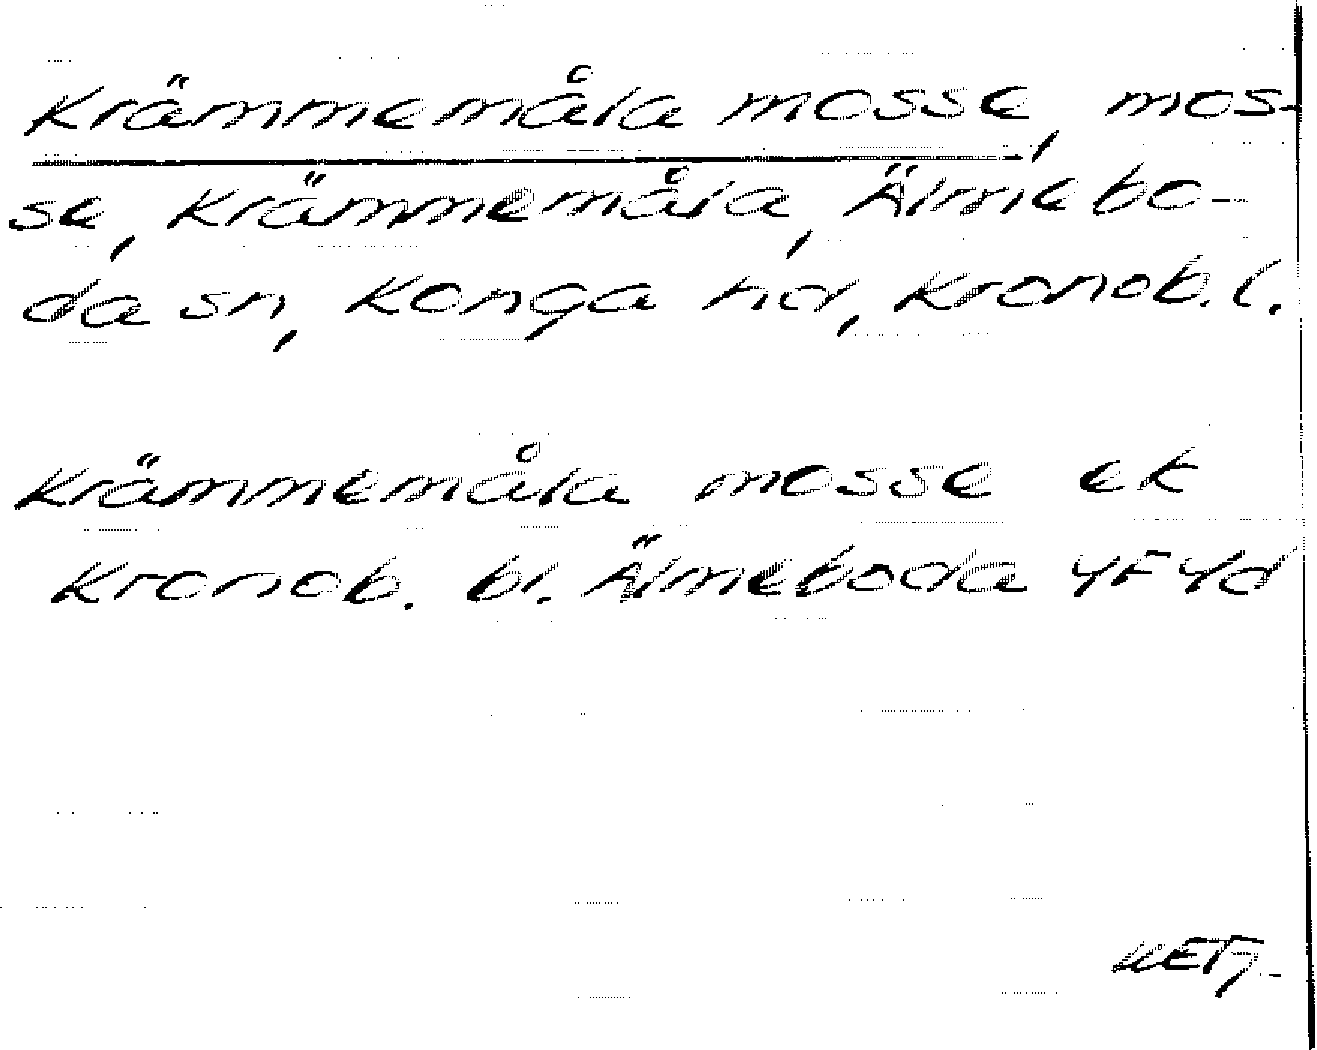 Krämmemåla mosse, mos-
se, Krämmemåla, Älmebo-
da sn, Konga hd, Kronob. l.
Krämmemåla mosse ek
Kronob. bl. Älmeboda 4F4d